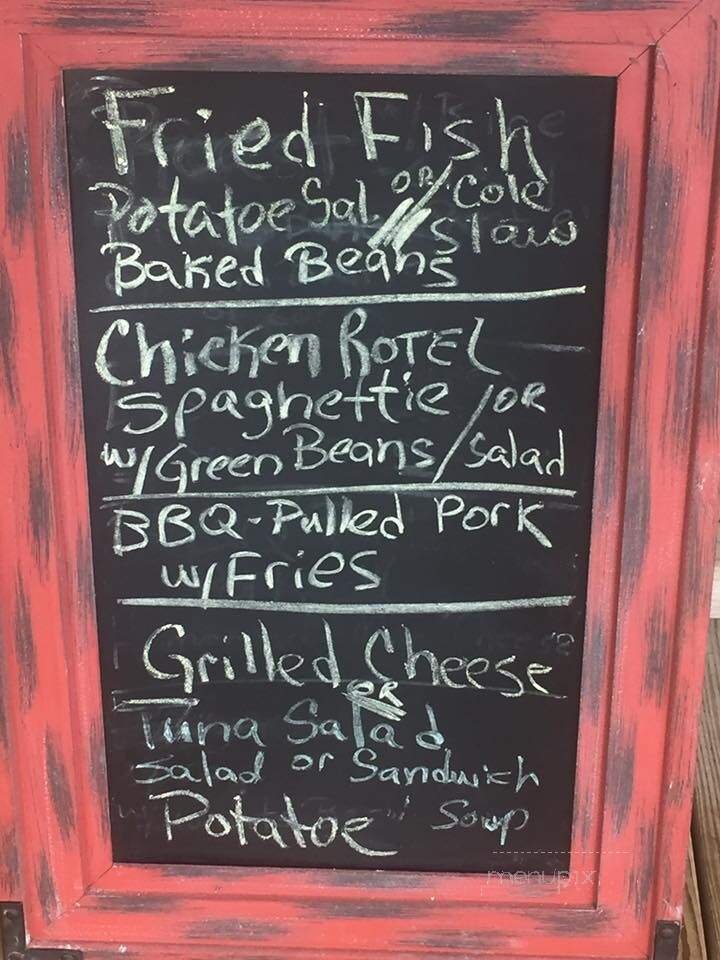 Fried Fish
Potatoe Sal. OR/Cole Slaw
Baked Beans
Chicken ROTEL
Spaghettie /OR
w/Green Beans/Salad
BBQ-Pulled Pork
w/Fries
Grilled Cheese
OR
Tuna Salad
Salad or Sandwich
Potatoe Soup
menupix